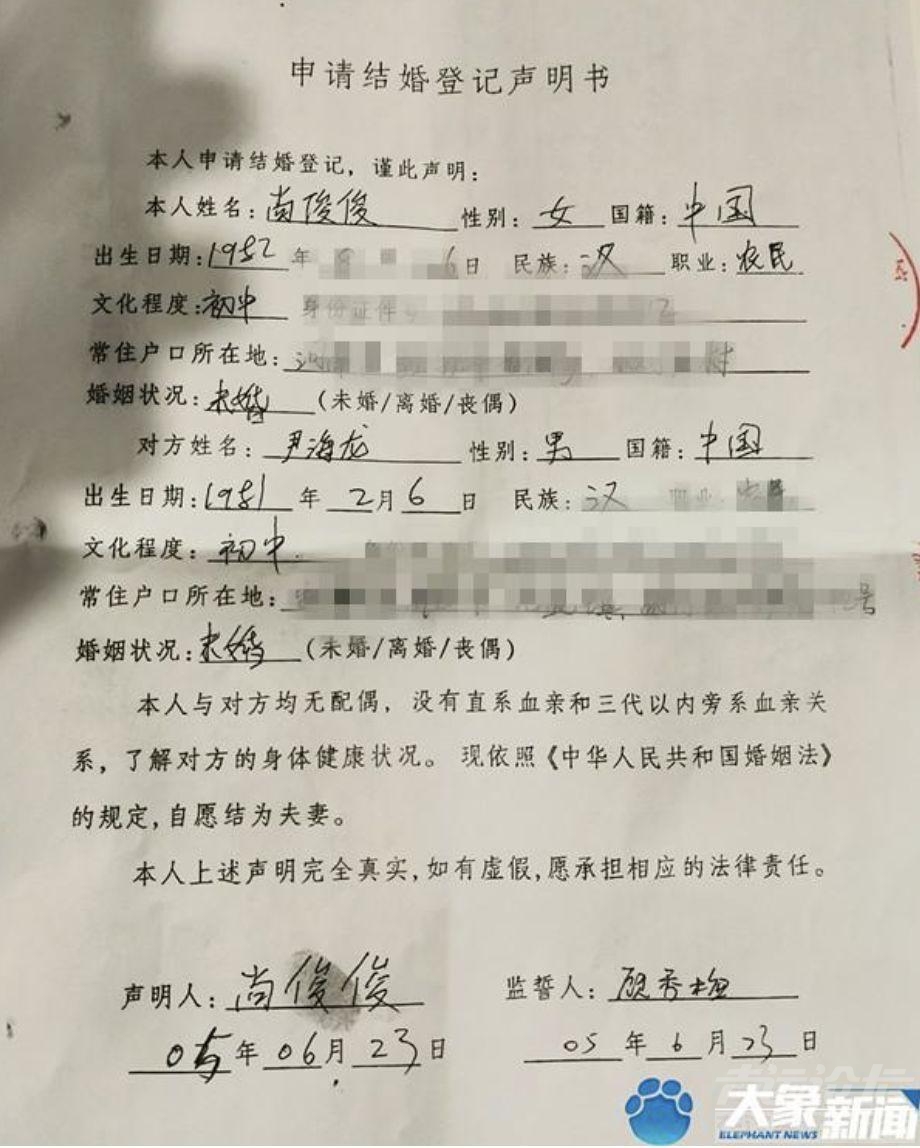 申请结婚登记声明书
本人申请结婚登记，谨此声明：
本人姓名：尚俊俊 性别：女 国籍：中国
出生日期：1982年 6日 民族：汉 职业：农民
文化程度：初中 身份证件号
常住户口所在地： 村
婚姻状况：未婚（未婚/离婚/丧偶）
对方姓名：尹海龙 性别：男 国籍：中国
出生日期：1981年2月6日 民族：汉 职业：农民
文化程度：初中
常住户口所在地： 号
婚姻状况：未婚（未婚/离婚/丧偶）
本人与对方均无配偶，没有直系血亲和三代以内旁系血亲关
系，了解对方的身体健康状况。现依照《中华人民共和国婚姻法》
的规定，自愿结为夫妻。
本人上述声明完全真实，如有虚假，愿承担相应的法律责任。
声明人：尚俊俊 监誓人：顾秀梅
05年06月23日 05年6月23日
大象新闻
ELEPHANT NEWS